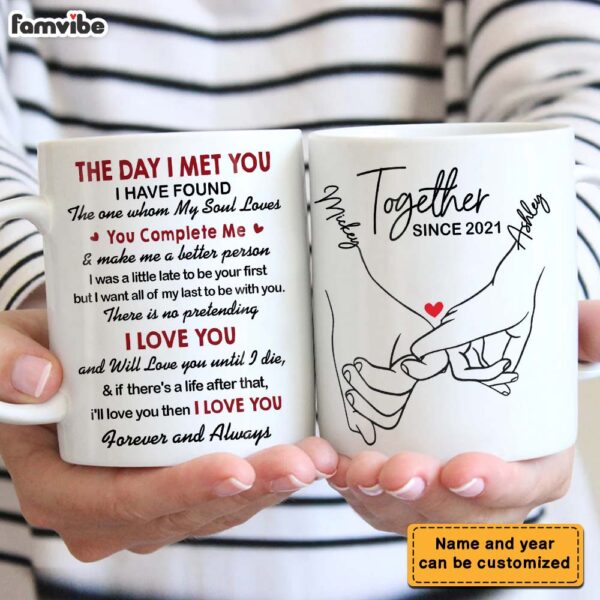 famvibe
THE DAY I MET YOU
I HAVE FOUND
The one whom My Soul Loves
You Complete Me
& make me a better person
I was a little late to be your first
but I want all of my last to be with you.
There is no pretending
I LOVE YOU
and Will Love you until I die,
& if there's a life after that,
i'll love you then I LOVE YOU
Forever and Always
Together
SINCE 2021
Mickey
Ashley
Name and year
can be customized